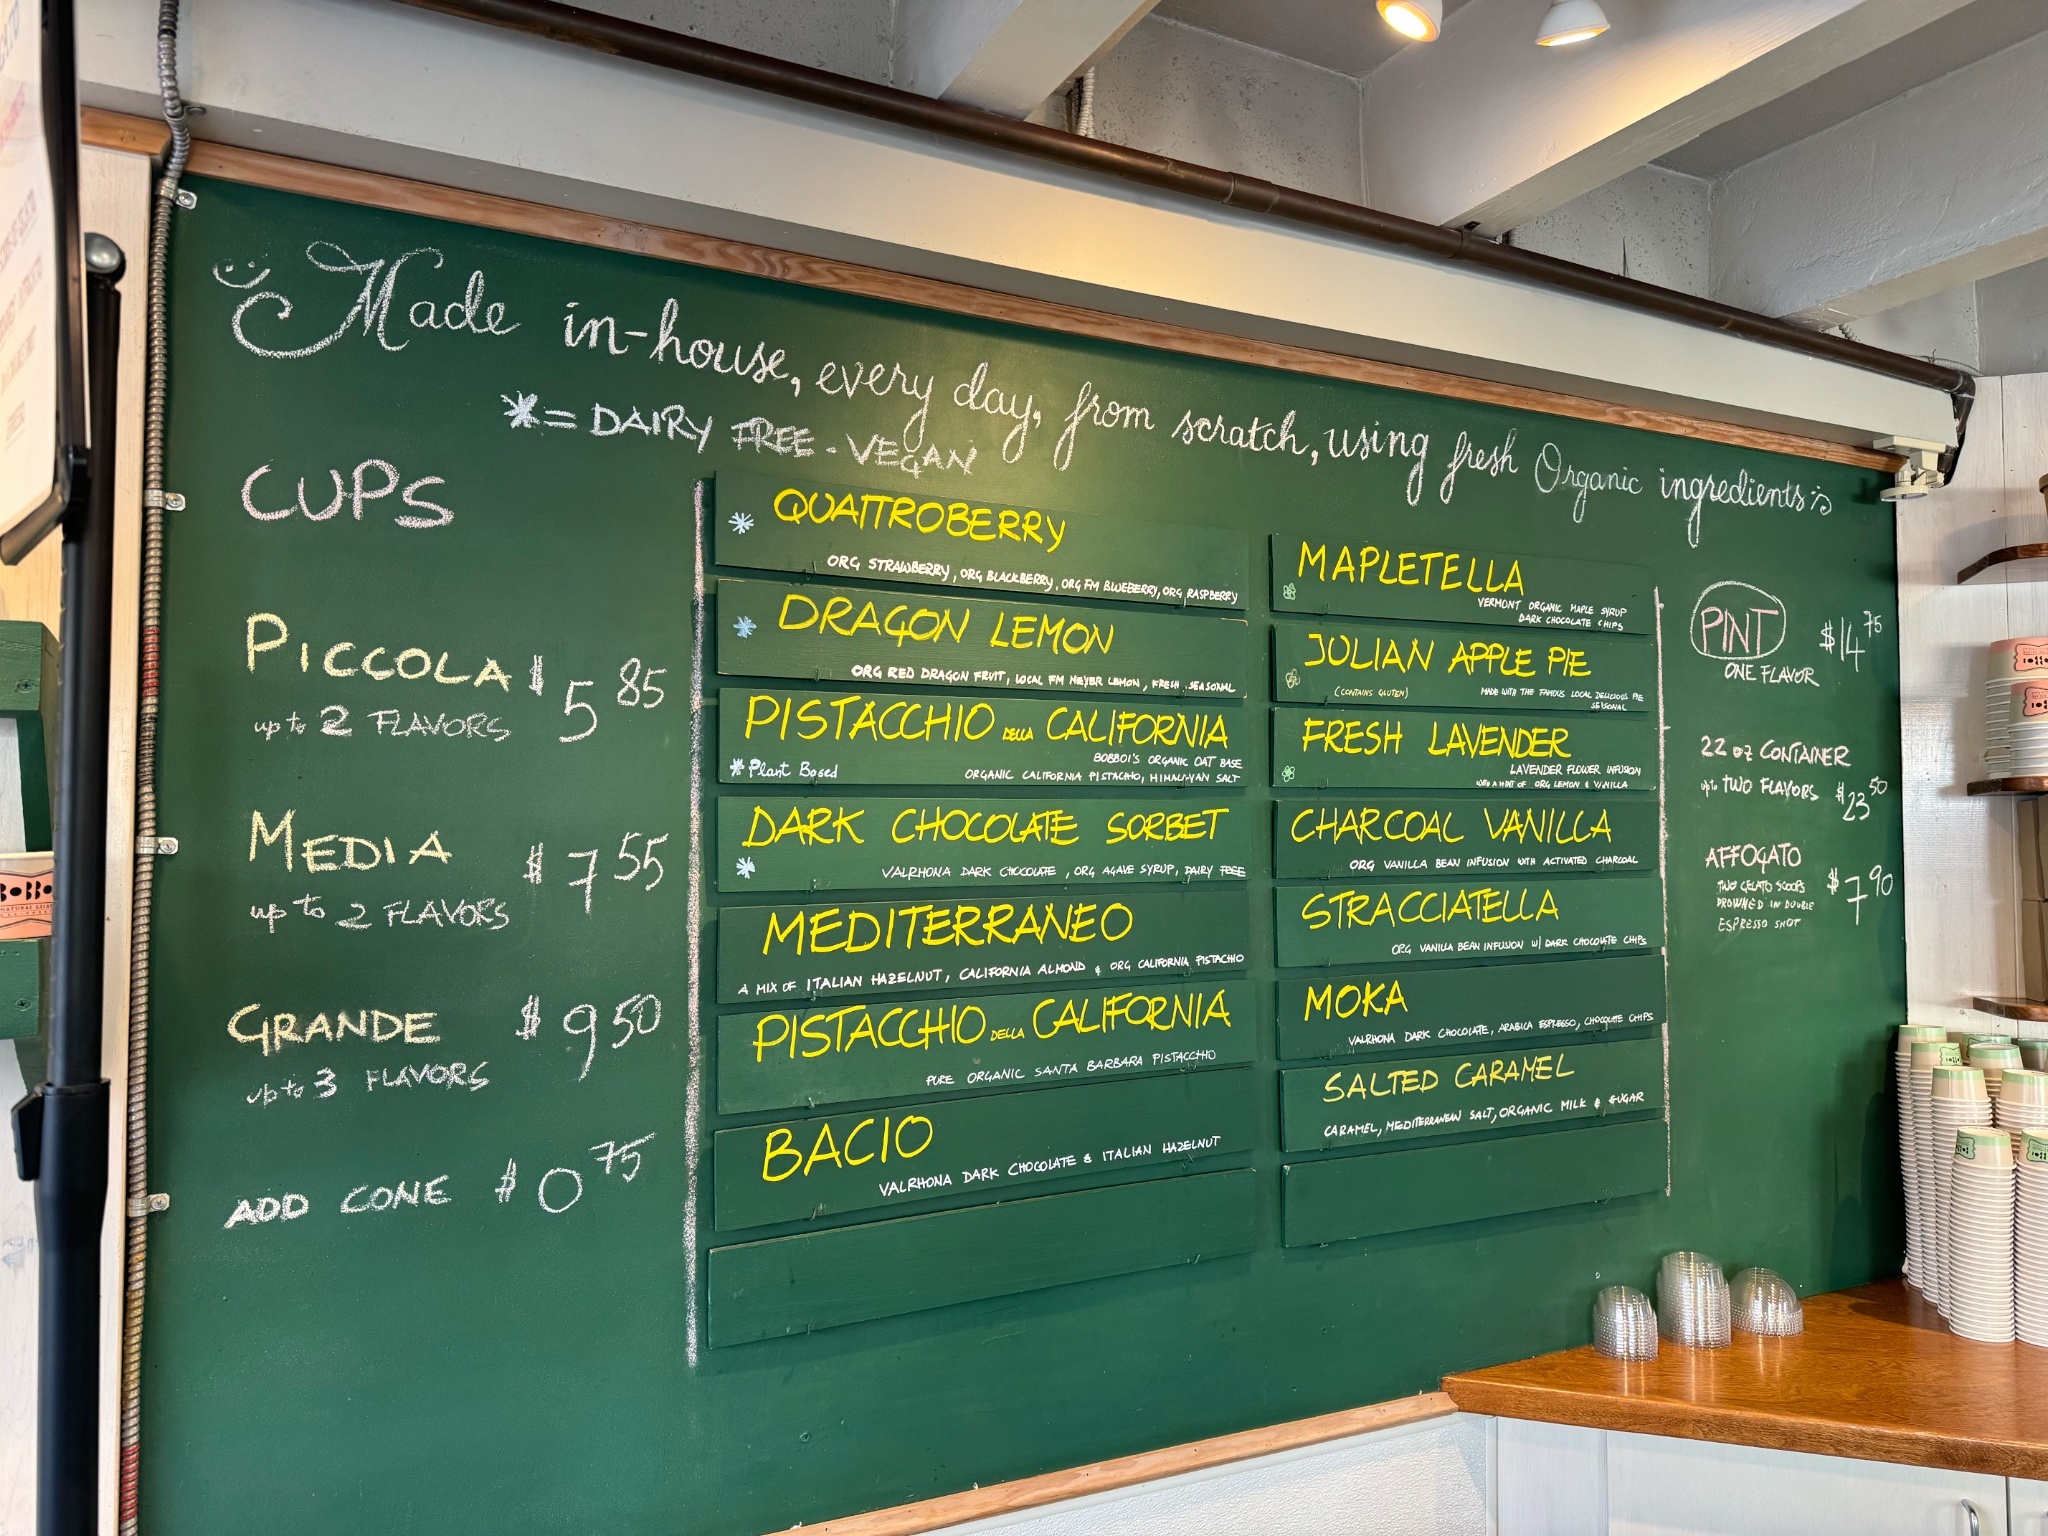 Made in-house, every day, from scratch, using fresh Organic ingredients
*= DAIRY FREE - VEGAN
CUPS
PICCOLA $ 5 85
up to 2 FLAVORS
MEDIA $ 7 55
up to 2 FLAVORS
GRANDE $ 9 50
up to 3 FLAVORS
ADD CONE $ 0 75
* QUATTROBERRY
ORG STRAWBERRY, ORG BLACKBERRY, ORG FM BLUEBERRY, ORG RASPBERRY
* DRAGON LEMON
ORG RED DRAGON FRUIT, LOCAL FM MEYER LEMON, FRESH, SEASONAL
PISTACCHIO DELLA CALIFORNIA
BOBBOI'S ORGANIC OAT BASE
* Plant Based
ORGANIC CALIFORNIA PISTACHIO, HIMALAYAN SALT
DARK CHOCOLATE SORBET
* VALRHONA DARK CHOCOLATE, ORG AGAVE SYRUP, DAIRY FREE
MEDITERRANEO
A MIX OF ITALIAN HAZELNUT, CALIFORNIA ALMOND & ORG CALIFORNIA PISTACHIO
PISTACCHIO DELLA CALIFORNIA
PURE ORGANIC SANTA BARBARA PISTACCHIO
BACIO
VALRHONA DARK CHOCOLATE & ITALIAN HAZELNUT
MAPLETELLA
VERMONT ORGANIC MAPLE SYRUP
DARK CHOCOLATE CHIPS
JULIAN APPLE PIE
(CONTAINS GLUTEN) MADE WITH THE FAMOUS LOCAL DELICIOUS PIE
SEASONAL
FRESH LAVENDER
LAVENDER FLOWER INFUSION
WITH A HINT OF ORG LEMON & VANILLA
CHARCOAL VANILLA
ORG VANILLA BEAN INFUSION WITH ACTIVATED CHARCOAL
STRACCIATELLA
ORG VANILLA BEAN INFUSION W/ DARK CHOCOLATE CHIPS
MOKA
VALRHONA DARK CHOCOLATE, ARABICA ESPRESSO, CHOCOLATE CHIPS
SALTED CARAMEL
CARAMEL, MEDITERRANEAN SALT, ORGANIC MILK & SUGAR
PINT $14 75
ONE FLAVOR
22 oz CONTAINER
up to TWO FLAVORS $23 50
AFFOGATO
TWO GELATO SCOOPS $7 90
DROWNED IN DOUBLE
ESPRESSO SHOT